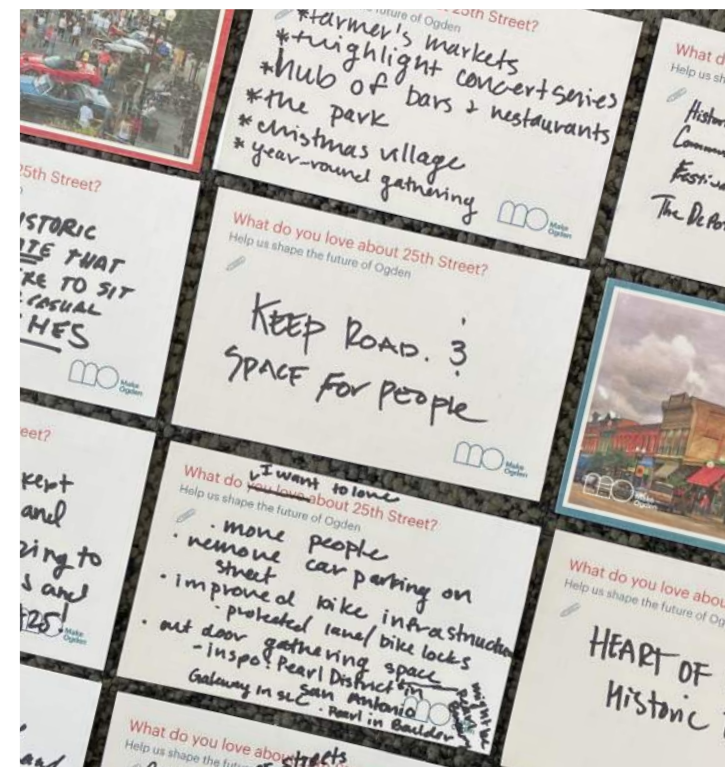 25th Street?
future of Ogden
*farmer's markets
*twighlight concert series
*hub of bars & restaurants
*the park
*christmas village
*year-round gathering
MO Make Ogden
What d
Help us sh
Histor
Commun
Festiv
The Depo
25th Street?
ISTORIC
TE THAT
RE TO SIT
CASUAL
HES
MO Make Ogden
What do you love about 25th Street?
Help us shape the future of Ogden
KEEP ROAD. &
SPACE FOR PEOPLE
MO Make Ogden
MO Make Ogden
eet?
kept
and
zing to
s and
$25!
Ogden
I want to love
What do you love about 25th Street?
Help us shape the future of Ogden
· more people
· remove car parking on
street
· improved bike infrastructure
· protected lane/bike locks
· out door gathering space
- inspo: Pearl District in
San Antonio
Gateway in SLC · Pearl in Boulder
might be
Make Ogden
What do you love abou
Help us shape the future of Og
HEART OF
Historic
What do you love about
Help us shape the futu
streets
and